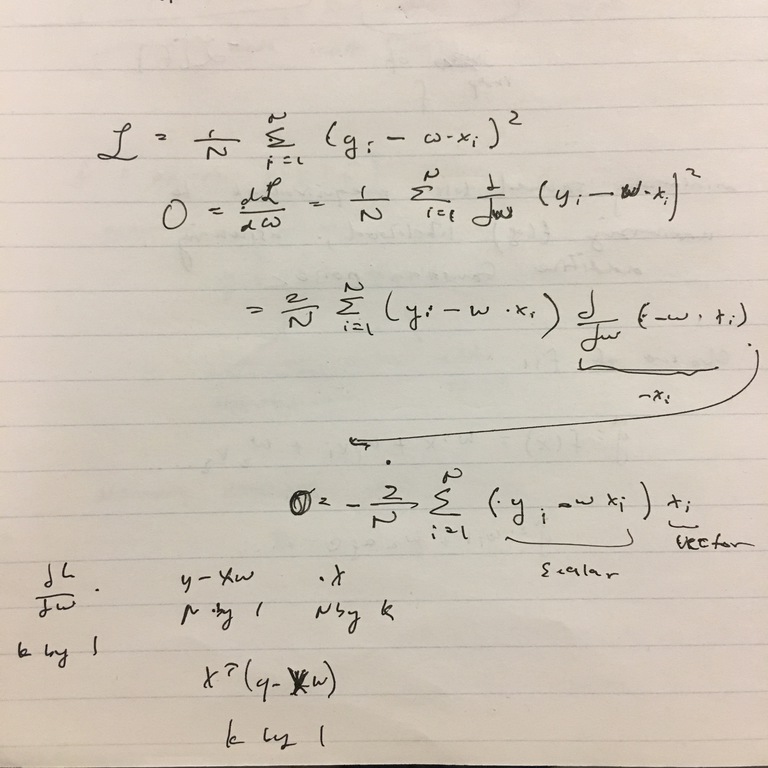 ℒ = 1/N Σ_{i=1}^{N} (y_i − w·x_i)^2
0 = dℒ/dw = 1/N Σ_{i=1}^{N} d/dw (y_i − w·x_i)^2
= 2/N Σ_{i=1}^{N} (y_i − w·x_i) d/dw (−w·x_i)
−x_i
0 = −2/N Σ_{i=1}^{N} (y_i − w x_i) x_i
scalar vector
dL/dw . y − Xw . X
k by 1 N by 1 N by k
X^T(y − Xw)
k by 1